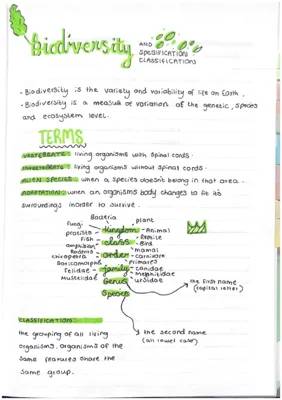 Biodiversity AND
SPECIFICATION
CLASSIFICATIONS
- Biodiversity is the variety and variability of life on Earth.
- Biodiversity is a measure of variation of the genetic, species
and ecosystem level.
TERMS
VERTEBRATE: living organisms with spinal cords.
INVERTEBRATE: living organisms without spinal cords.
ALIEN SPECIES: when a species doesnt belong in that area.
ADAPTATION: when an organisms body changes to fit its
surroundings inorder to survive.
Bacteria plant
fungi Kingdom Animal
protists Reptile
Fish class Bird
amphibian mamal
Rodents order carnivore
chiroptera primates
Soricomorpha family canidae
Felidae Mephitidae
Mustelidae Genus ursidae
Species
the first name
(capital letter)
the second name
(all lower case)
CLASSIFICATION:
the grouping of all living
organisms. organisms of the
same features share the
same group.